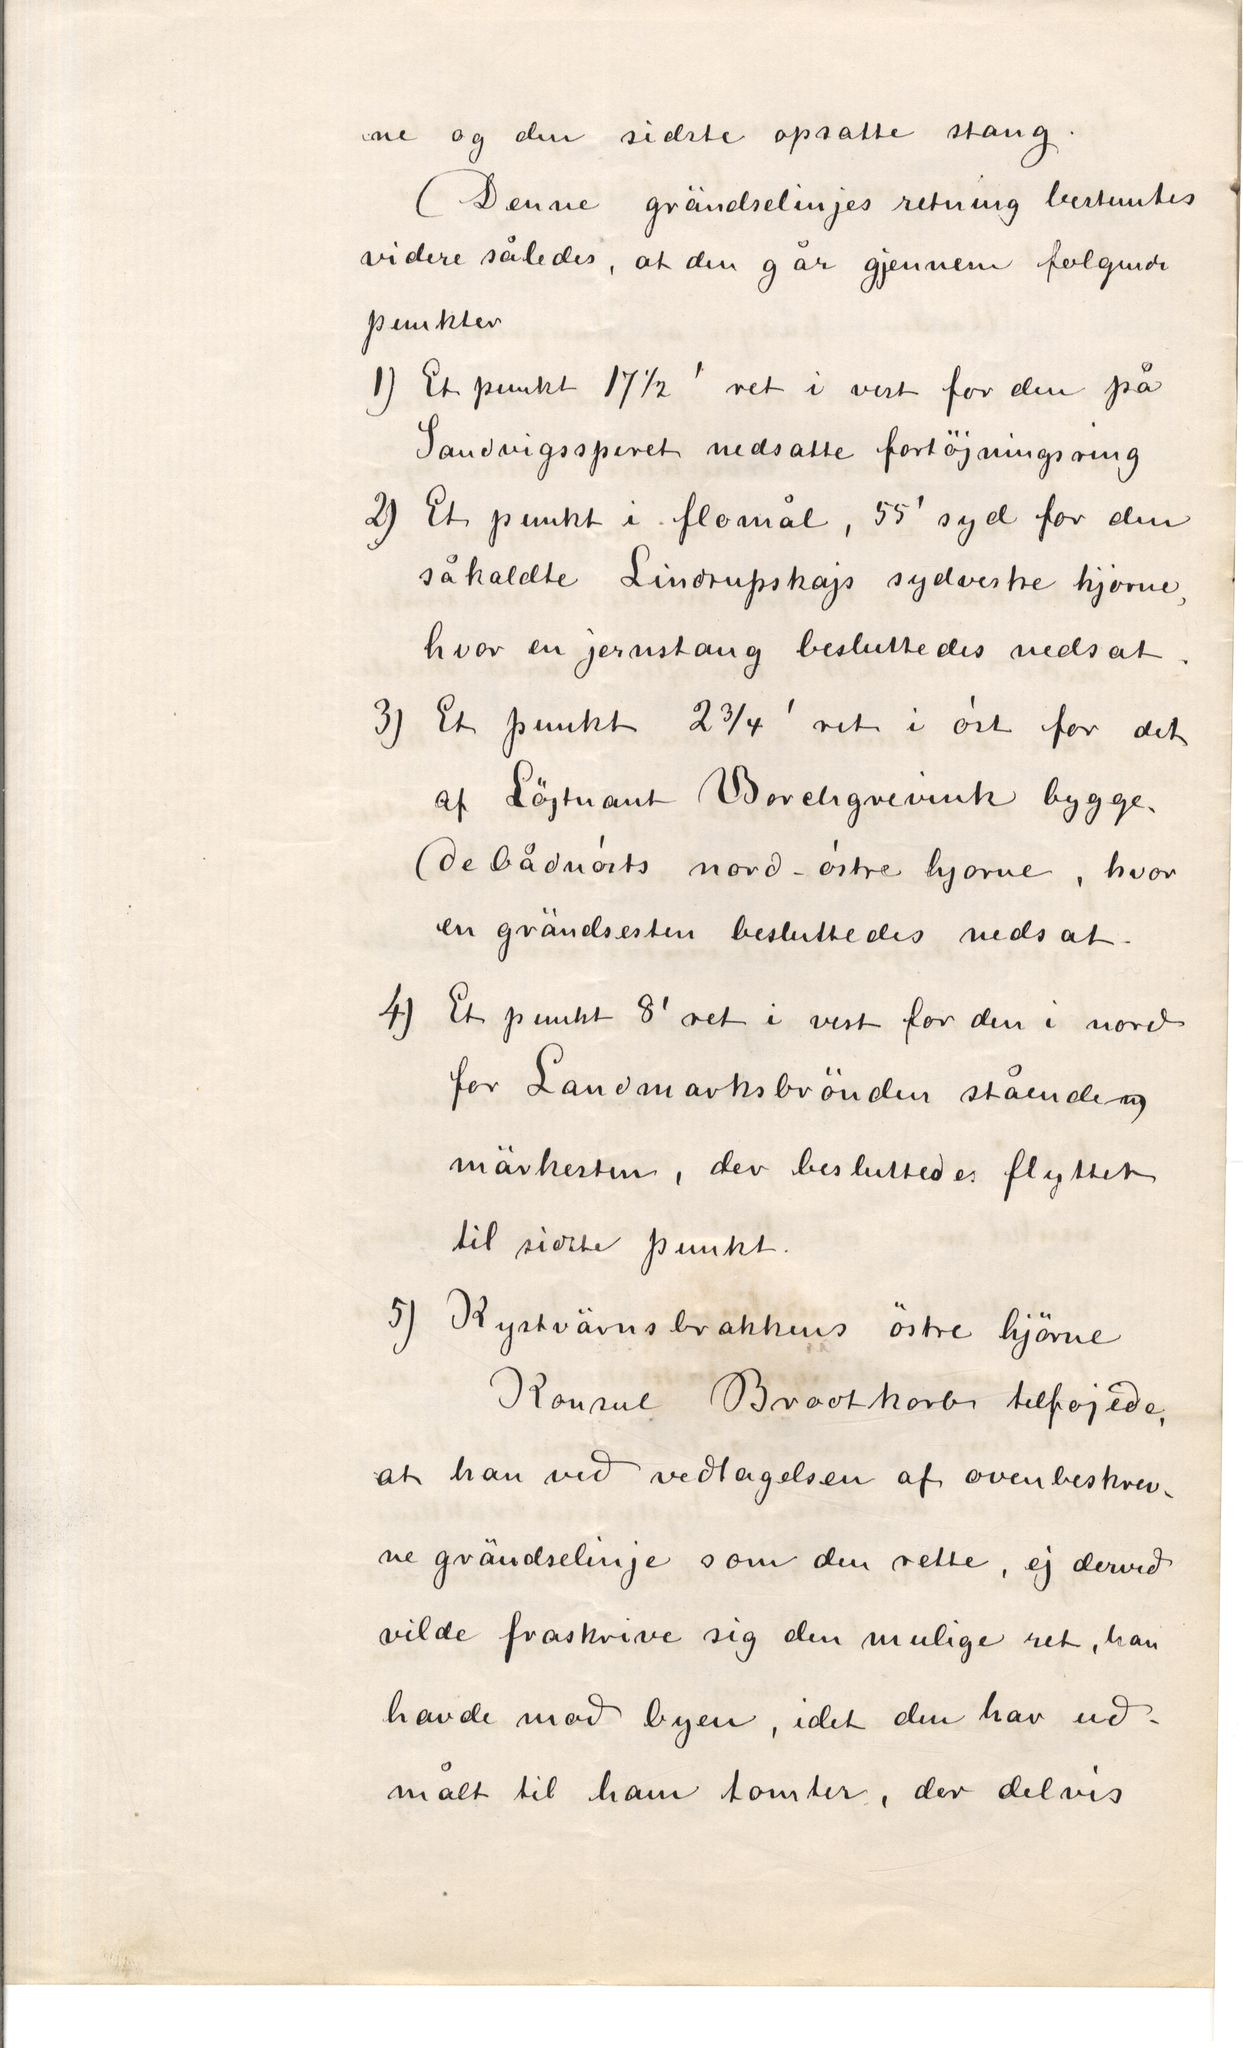 ne og den sidste opsatte stang.
(Denne grändselinjes retning bestemtes
videre således, at den går gjennem følgende
punkter
1) Et punkt 17 1/2 ' ret i vest for den på
Sandvigssperet nedsatte fortöjningsring
2) Et punkt i flomål, 55' syd for den
såkaldte Lindrupskajs sydvestre hjørne,
hvor en jernstang besluttedes nedsat.
3) Et punkt 2 3/4 ' ret i óst for det
af Löjtnant Borchgrevink bygge-
(de bådnósts nord-óstre hjorne, hvor
en grändsesten besluttedes nedsat.
4) Et punkt 8' ret i vest for den i nord
for Landmarksbrönden stående
märkesten, der besluttedes flyttet
til sidste punkt.
5) Kystvärnsbrakkens östre hjörne
Konsul Brodtkorb tilføjede,
at han ved vedtagelsen af ovenbeskrev-
ne grändselinje som den rette, ej derved
vilde fraskrive sig den mulige ret, han
havde mod byen, idet den har ud-
målt til ham tomter, der delvis